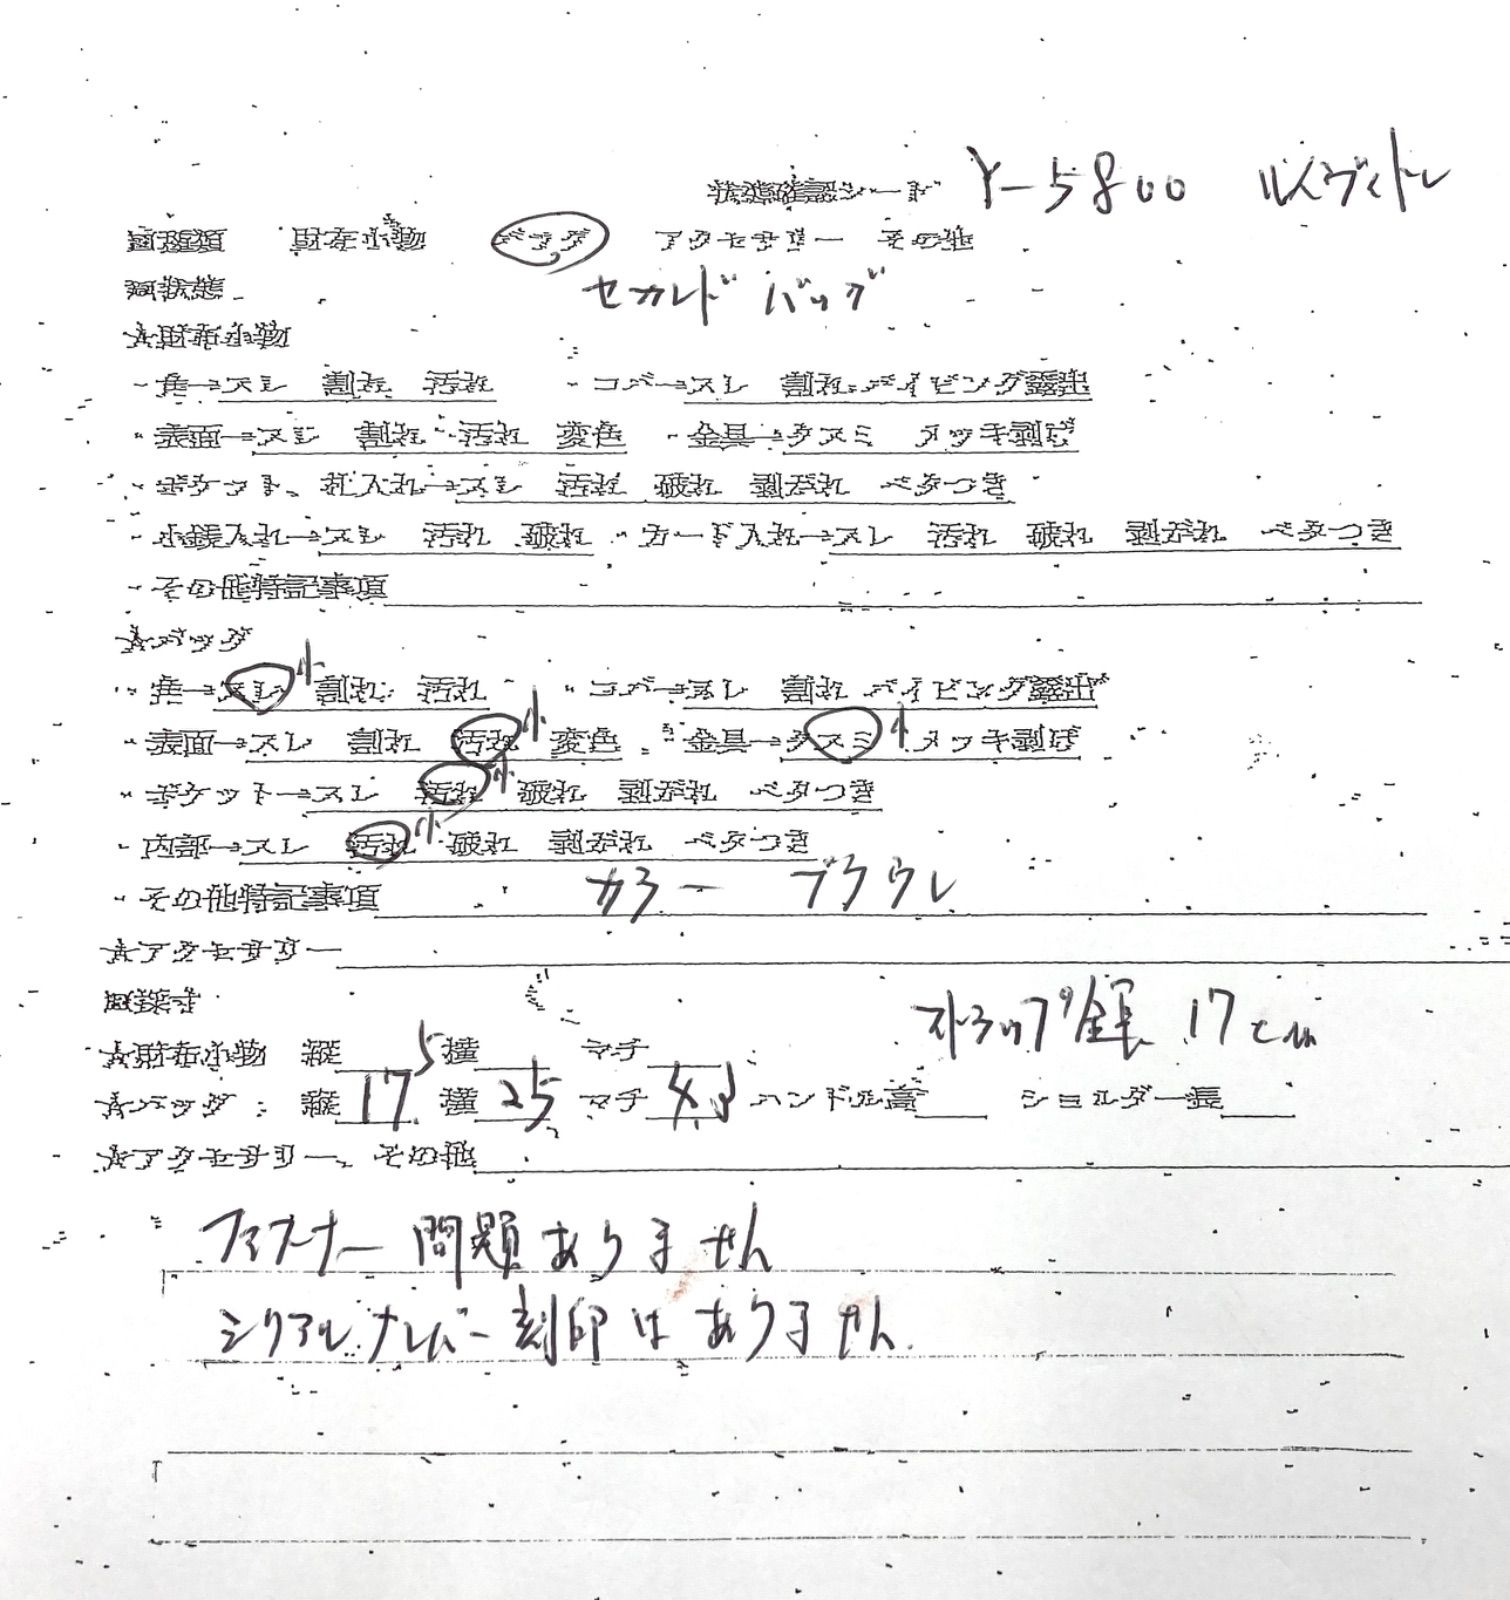 状態確認シート Y-5800 ルイヴィトン
■種類 財布小物 バッグ アクセサリー その他
■状態 セカンドバッグ
★財布小物
・角→スレ 割れ 汚れ ・コバ→スレ 割れ パイピング露出
・表面→スレ 割れ 汚れ 変色 ・金具→クスミ メッキ剥げ
・ポケット、札入れ→スレ 汚れ 破れ 剥がれ ベタつき
・小銭入れ→スレ 汚れ 破れ ・カード入れ→スレ 汚れ 破れ 剥がれ ベタつき
・その他特記事項
★バッグ
・角→スレ小 割れ 汚れ ・コバ→スレ 割れ パイピング露出
・表面→スレ 割れ 汚れ小 変色 ・金具→クスミ小 メッキ剥げ
・ポケット→スレ 汚れ小 破れ 剥がれ ベタつき
・内部→スレ 汚れ小 破れ 剥がれ ベタつき
・その他特記事項 カラー ブラウン
★アクセサリー
■採寸
ストラップ全長 17cm
★財布小物 縦 横 マチ
★バッグ 縦17.5 横25 マチ ハンドル高 ショルダー長
★アクセサリー、その他
ファスナー問題ありません
シリアルナンバー刻印はありません